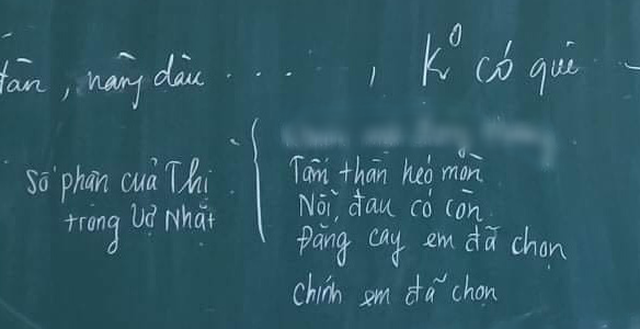 tần, nàng dâu ...... , K⁰ có quê
Số phận của Thị
trong Vợ Nhặt
Tấm thân héo mòn
Nỗi đau có còn
Đắng cay em đã chọn
Chính em đã chọn